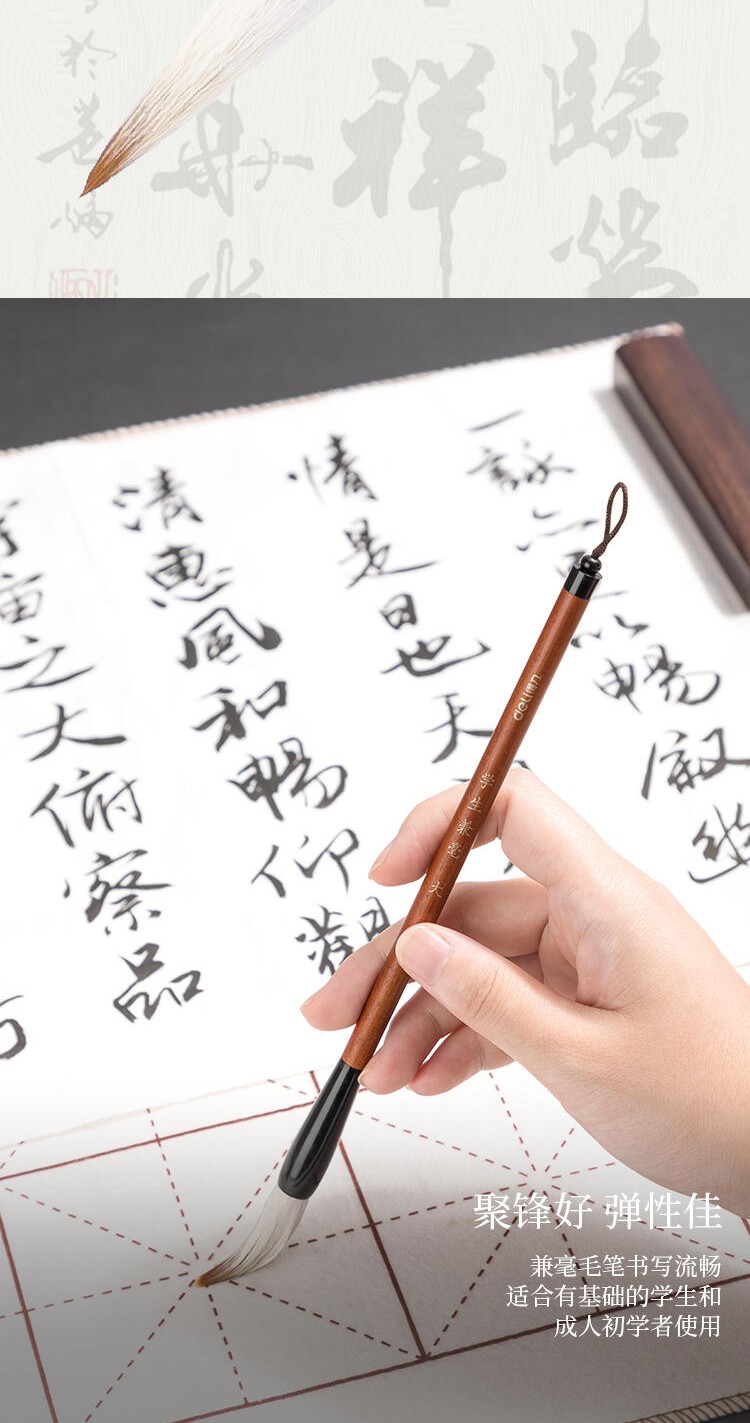 臨
祥
一詠
以暢叙幽
情是日也天
清惠風和暢仰觀
宇宙之大俯察品
deli得力
学生兼毫 大
聚锋好 弹性佳
兼毫毛笔书写流畅
适合有基础的学生和
成人初学者使用